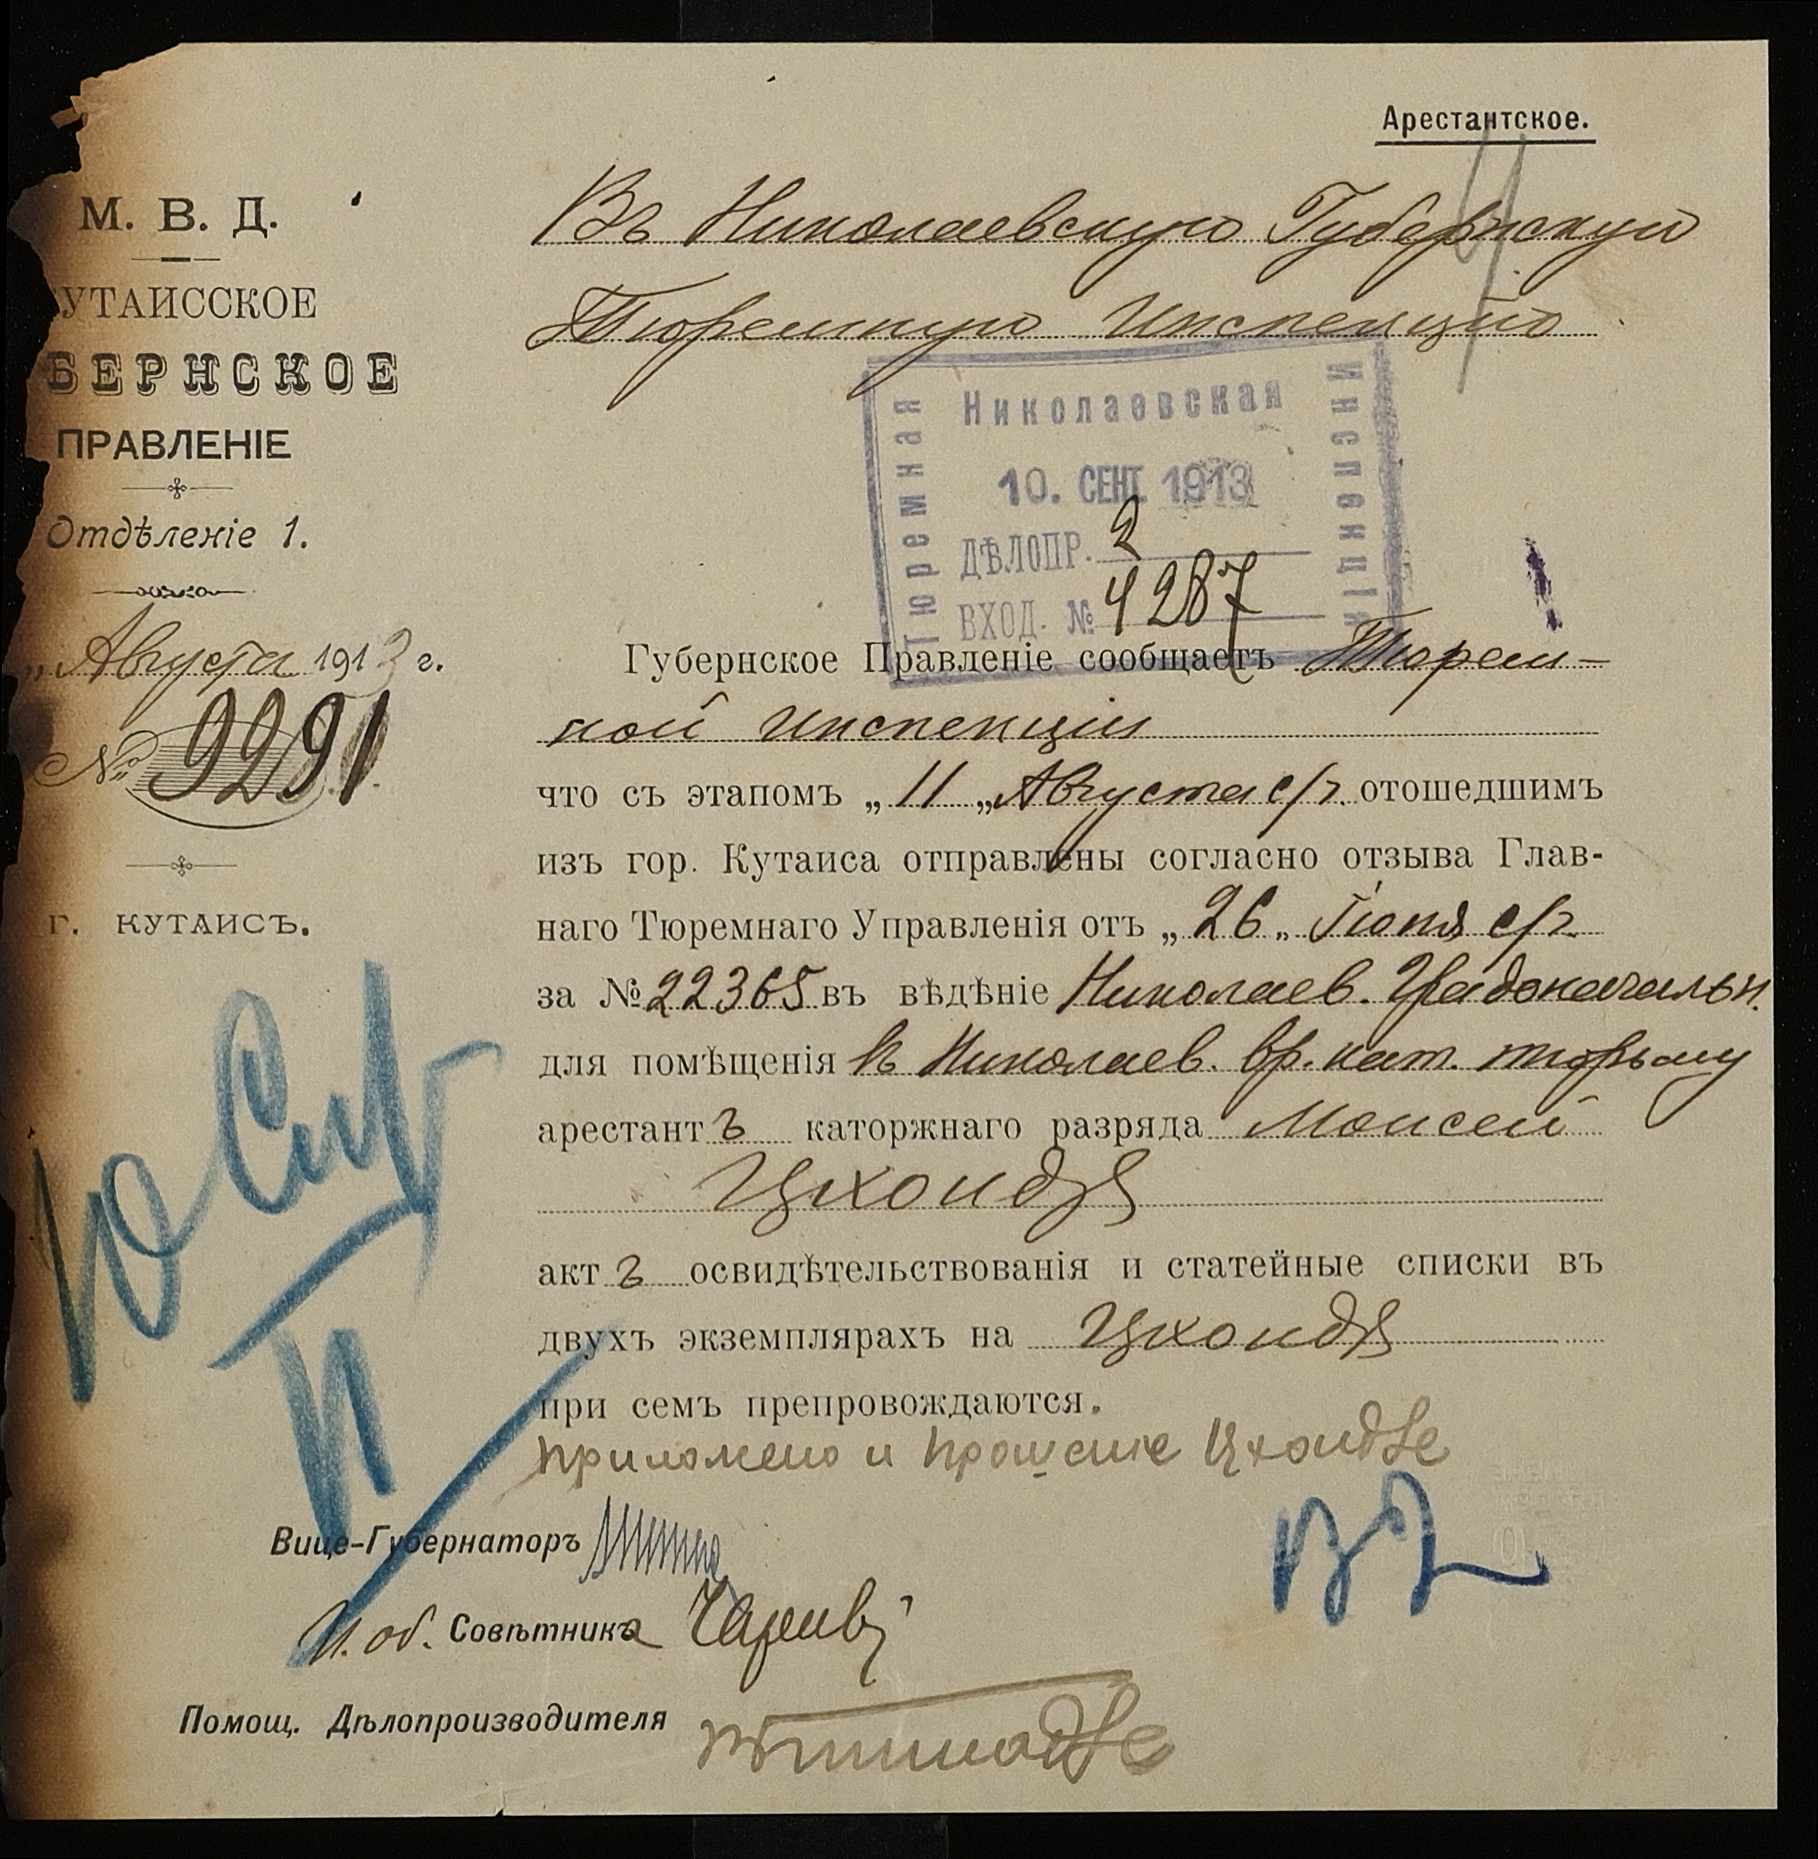 Арестантское.
М. В. Д.
УТАИССКОЕ
БЕРНСКОЕ
ПРАВЛЕНІЕ
Отдѣленіе 1.
„ Августа 1913 г.
№ 9291
г. КУТАИСЪ.
Въ Николаевскую Губернскую
Тюремную Инспекцію
Николаевская
Тюремная
Инспекція
10. СЕНТ. 1913
ДѢЛОПР. 2
ВХОД. № 4287
Губернское Правленіе сообщаетъ Тюрем-
ной Инспекціи
что съ этапомъ „ 11 „ Августа с/г. отошедшимъ
изъ гор. Кутаиса отправлены согласно отзыва Глав-
наго Тюремнаго Управленія отъ „ 26 „ Іюня с/г.
за № 22365 въ вѣдѣніе Николаев. Градоначальн.
для помѣщенія въ Николаев. вр. кат. тюрьму
арестантъ каторжнаго разряда Моисей
Цхоидзе
актъ освидѣтельствованія и статейные списки въ
двухъ экземплярахъ на Цхоидзе
при семъ препровождаются.
приложено и прошеніе Цхоидзе
Вице-Губернаторъ
И. об. Совѣтника
Помощ. Дѣлопроизводителя